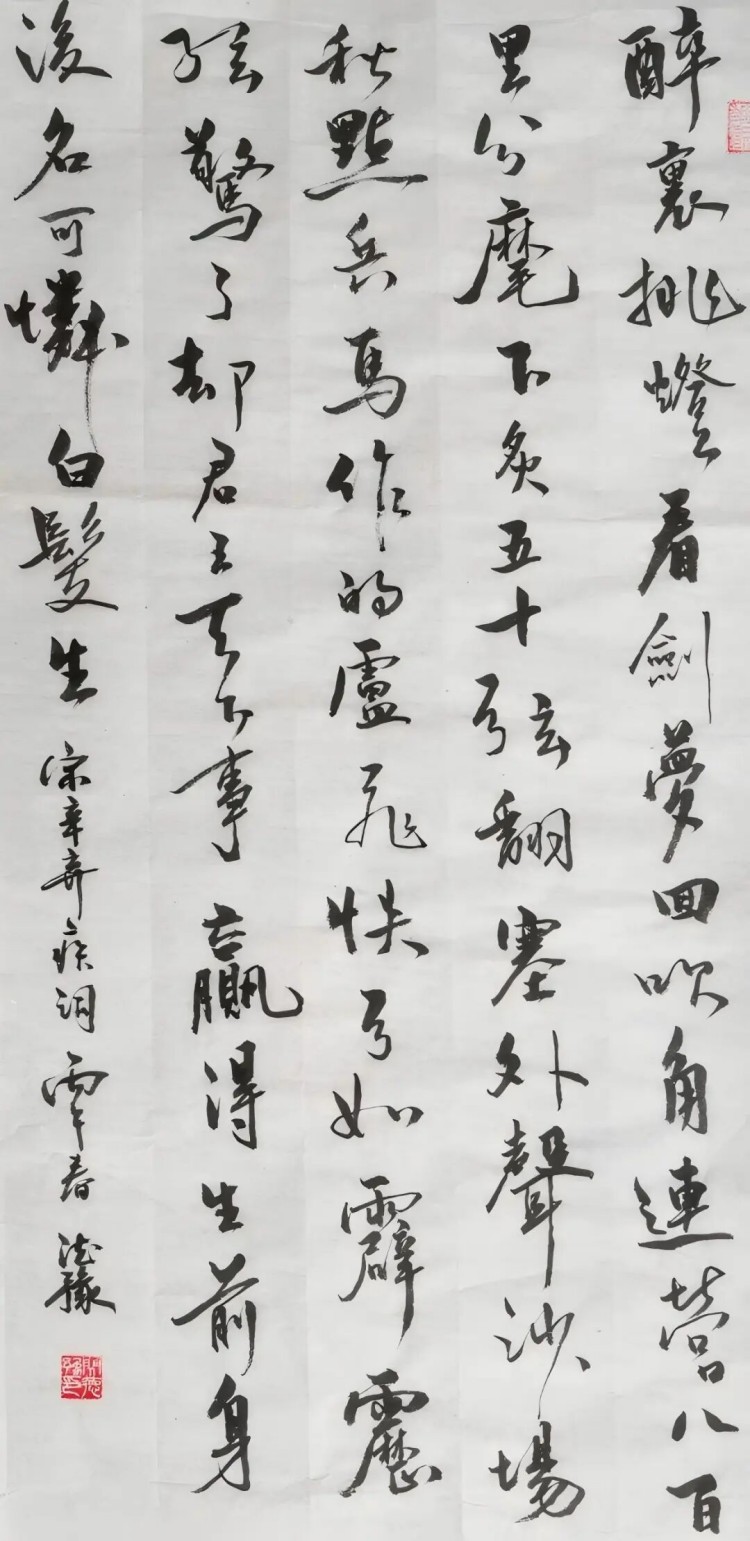 醉裏挑燈看劍夢回吹角連營八百
里分麾下炙五十弦翻塞外聲沙場
秋點兵馬作的盧飛快弓如霹靂
弦驚了却君王天下事贏得生前身
後名可憐白髮生 宋辛弃疾詞 丙午春 豫